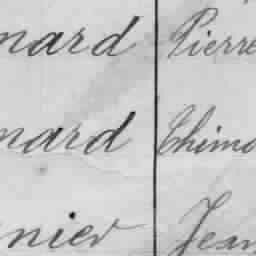 nard Pierre
nard Chimo
nier Jean